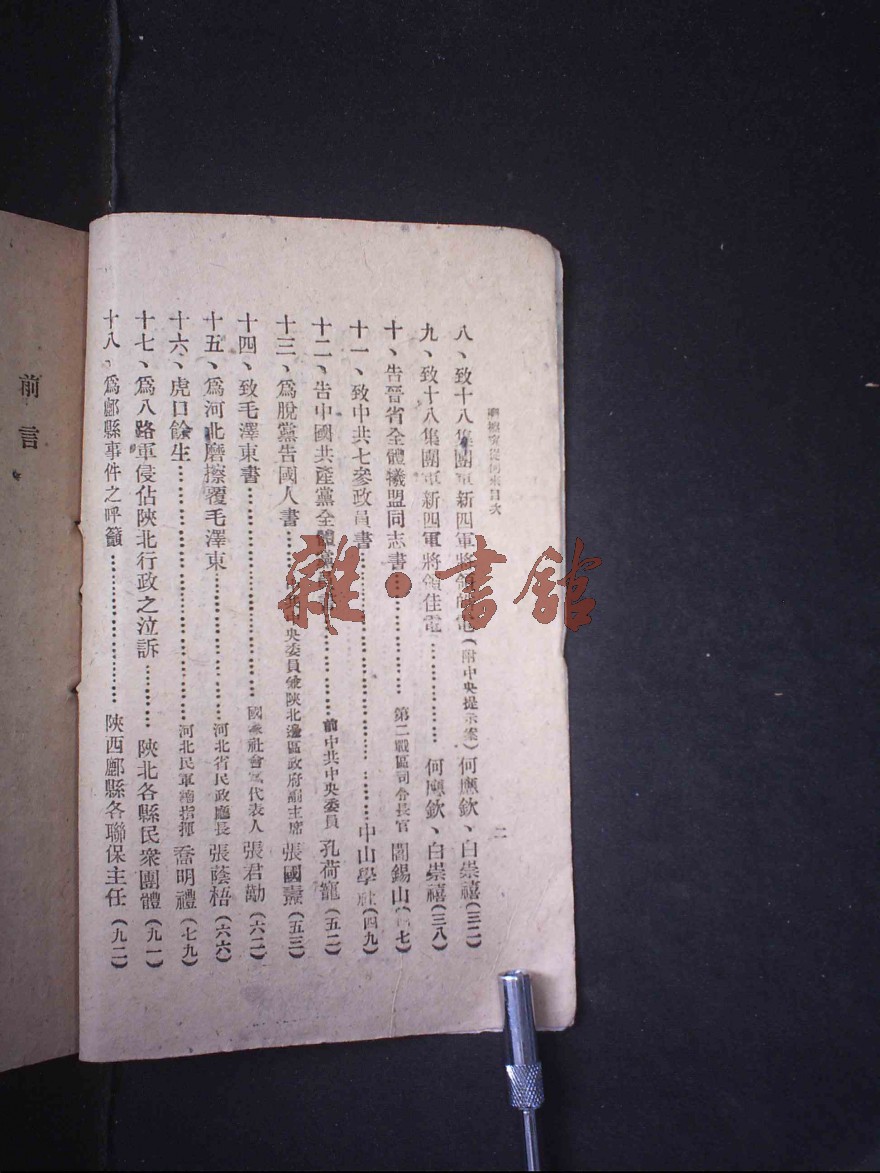 從何來目次
二
八、致十八集團軍新四軍將領皓電(附中央提示案)何應欽、白崇禧(三二)
九、致十八集團軍新四軍將領佳電………………何應欽、白崇禧(三八)
十、告晉省全體犧盟同志書………………第二戰區司令長官 閻錫山(四七)
十一、致中共七參政員書………………中山學社(四九)
十二、告中國共產黨全體………………前中共中央委員 孔荷寵(五二)
十三、為脫黨告國人書………中共中央委員兼陝北邊區政府副主席 張國燾(五三)
十四、致毛澤東書………………國家社會黨代表人 張君勱(六二)
十五、為河北磨擦覆毛澤東………………河北省民政廳長 張蔭梧(六六)
十六、虎口餘生………………河北民軍總指揮 喬明禮(七九)
十七、為八路軍侵佔陝北行政之泣訴…………陝北各縣民衆團體(九一)
十八、為鄜縣事件之呼籲………………陝西鄜縣各聯保主任(九二)
前言
雜·書館